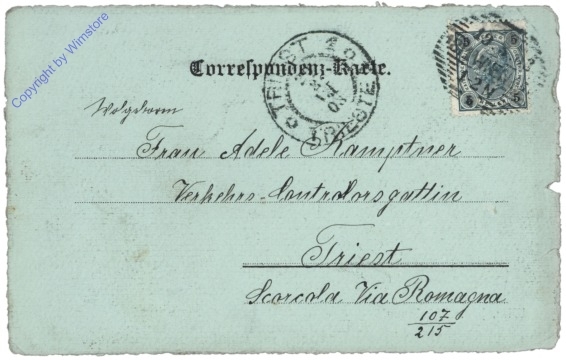 Copyright by Wimstore
Correspondenz-Karte.
TRIEST
TRIESTE
5 5
Wolgeborn
Frau Adele Kamptner
Verkehrs-Controlorsgattin
Triest
Scorcola Via Romagna
107
215